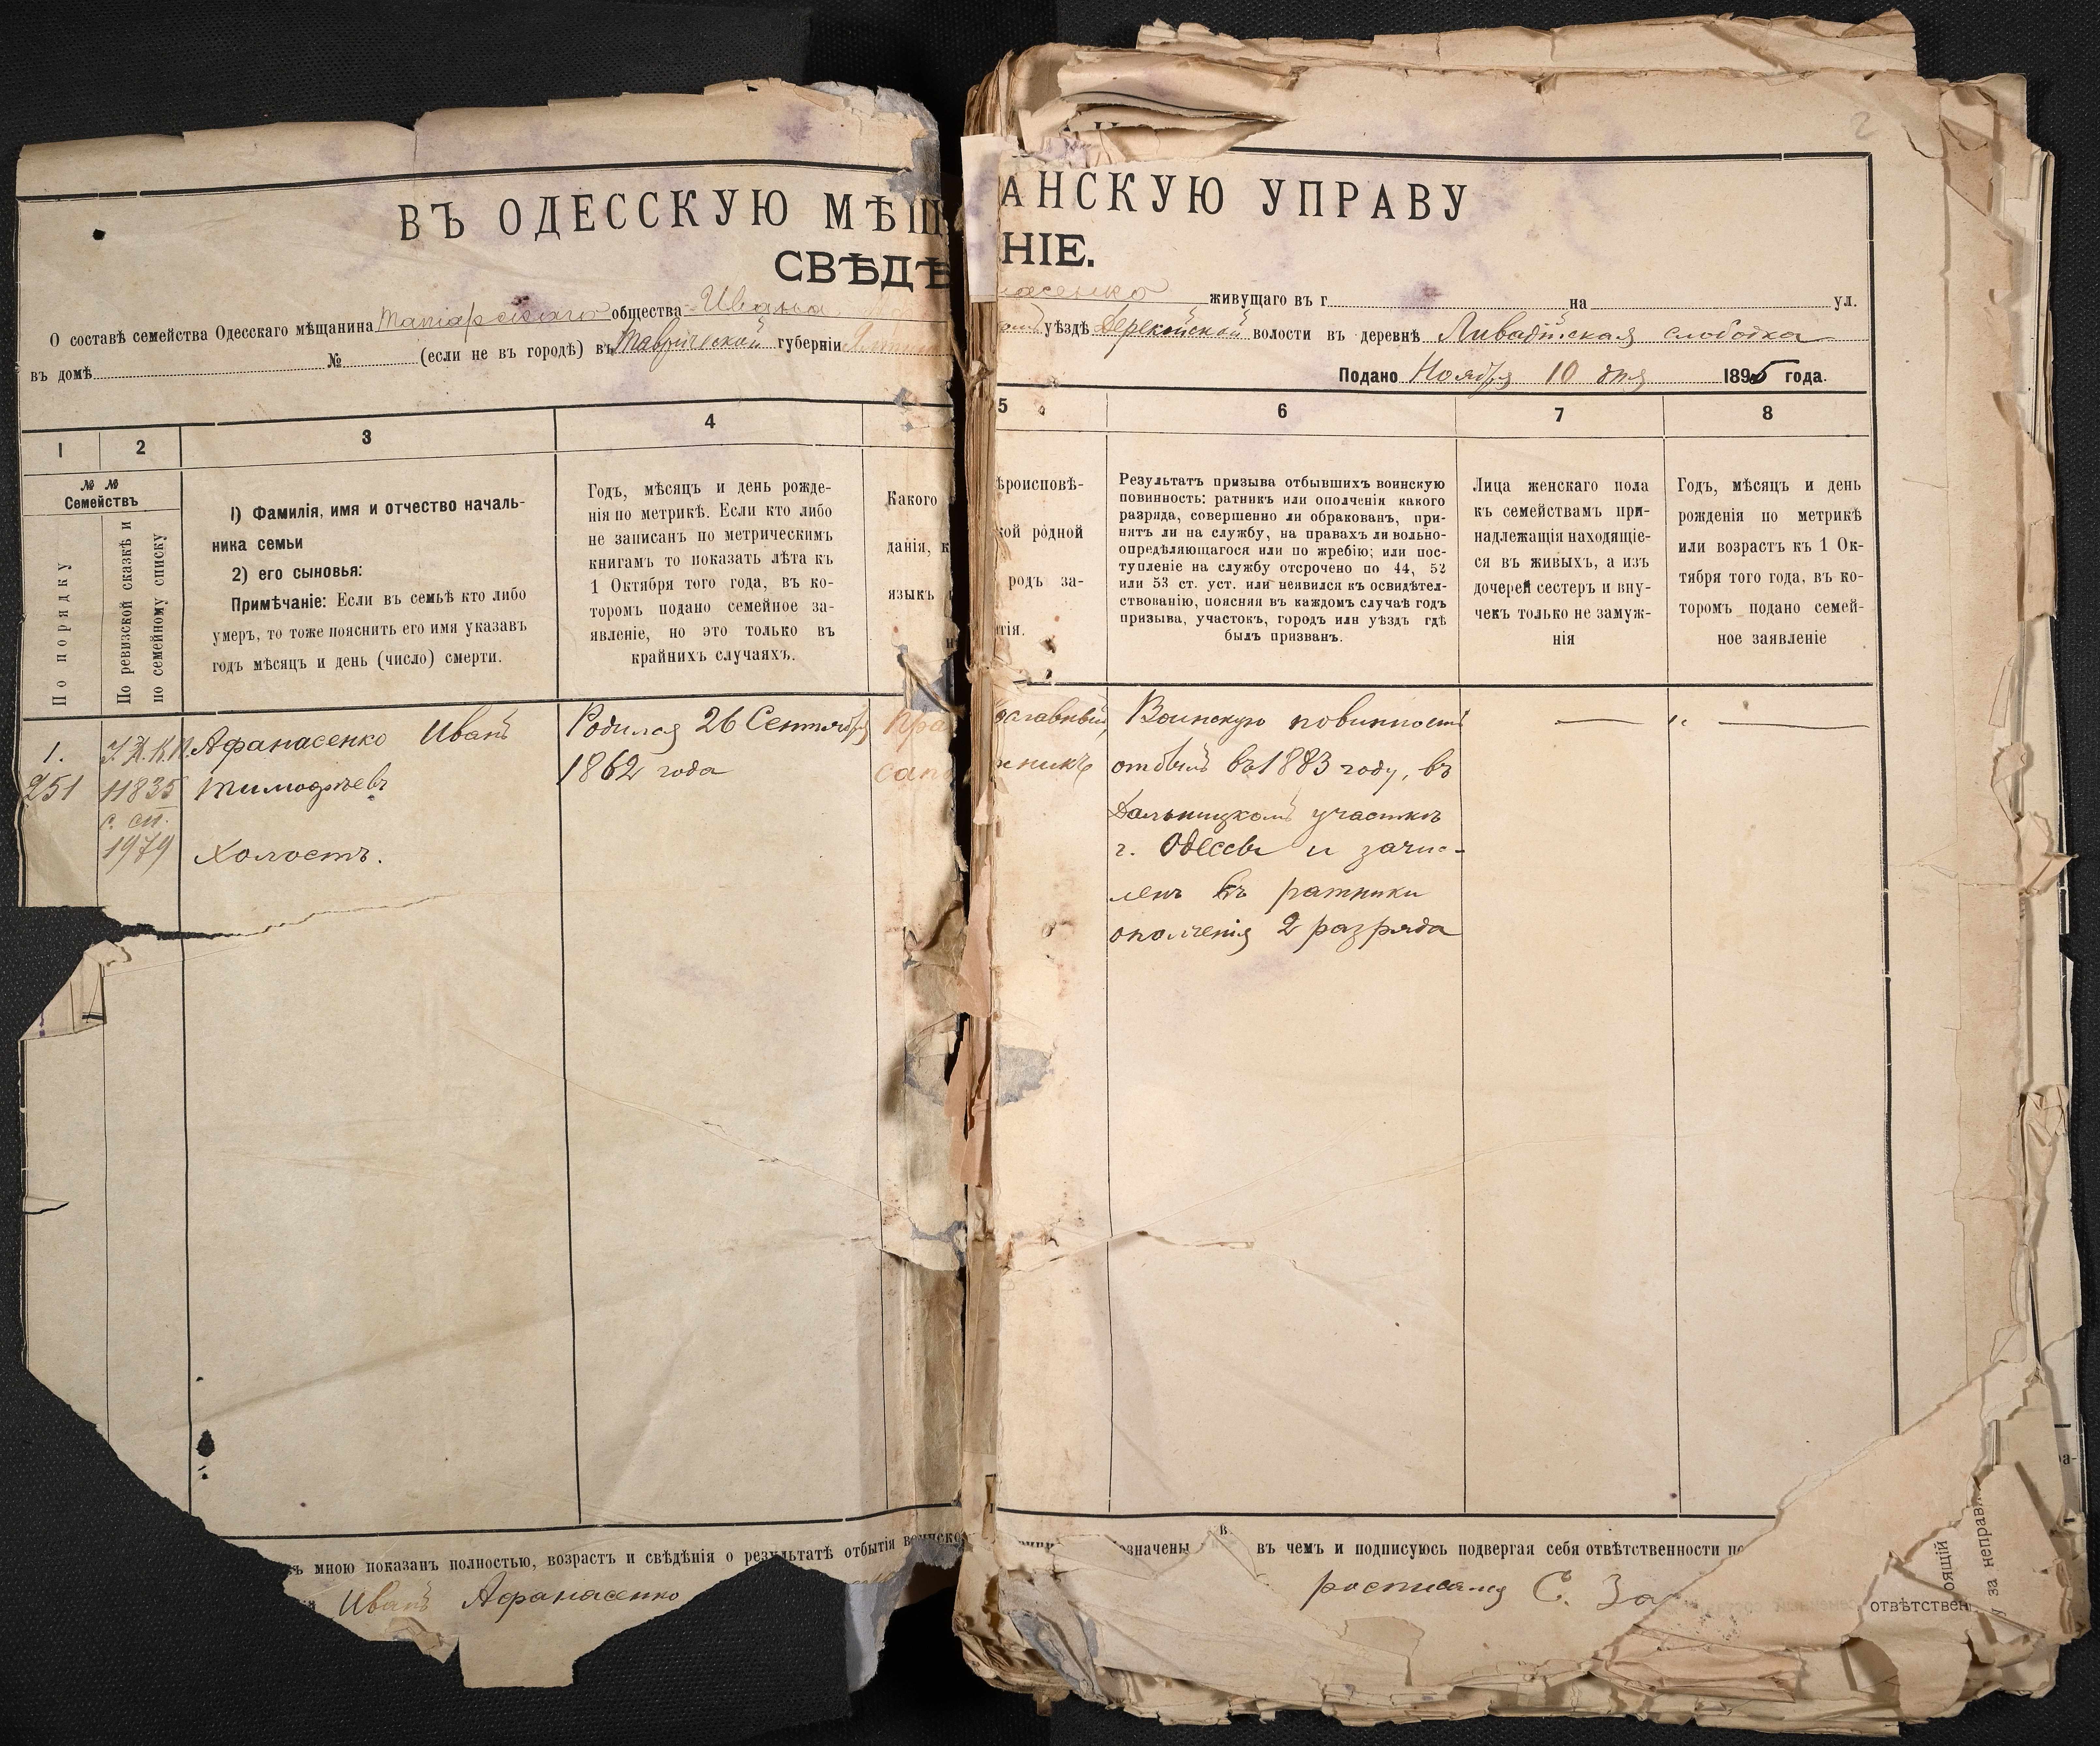 2
ВЪ ОДЕССКУЮ МѢЩАНСКУЮ УПРАВУ
СВѢДѢНІЕ.
О составѣ семейства Одесскаго мѣщанина общества Ивана живущаго въ г. на ул.
въ домѣ № (если не въ городѣ) въ Таврической губерніи уѣздѣ Дерекойской волости въ деревнѣ Ливадійская слободка
Подано Ноября 10 дня 1895 года.
1 2 3 4 5 6 7 8
№ №
Семействъ
По порядку
По ревизской сказкѣ и
по семейному списку
1) Фамилія, имя и отчество началь-
ника семьи
2) его сыновья:
Примѣчаніе: Если въ семьѣ кто либо
умеръ, то тоже пояснить его имя указавъ
годъ мѣсяцъ и день (число) смерти.
Годъ, мѣсяцъ и день рожде-
нія по метрикѣ. Если кто либо
не записанъ по метрическимъ
книгамъ то показать лѣта къ
1 Октября того года, въ ко-
торомъ подано семейное за-
явленіе, но это только въ
крайнихъ случаяхъ.
Какого ѣроисповѣ-
данія, к кой родной
языкъ родъ за-
н тія.
Результатъ призыва отбывшихъ воинскую
повинность: ратникъ или ополченія какого
разряда, совершенно ли обракованъ, при-
нятъ ли на службу, на правахъ ли вольно-
опредѣляющагося или по жребію; или пос-
тупленіе на службу отсрочено по 44, 52
или 53 ст. уст. или неявился къ освидѣтел-
ствованію, поясняя въ каждомъ случаѣ годъ
призыва, участокъ, городъ или уѣздъ гдѣ
былъ призванъ.
Лица женскаго пола
къ семействамъ при-
надлежащія находящіе-
ся въ живыхъ, а изъ
дочерей сестеръ и вну-
чекъ только не замуж-
нія
Годъ, мѣсяцъ и день
рожденія по метрикѣ
или возрастъ къ 1 Ок-
тября того года, въ ко-
торомъ подано семей-
ное заявленіе
1.
251
11835
с. сп.
1979
Афанасенко Иванъ
Тимофѣевъ
Холостъ.
Родился 26 Сентября
1862 года
Православный,
сапожникъ
Воинскую повинность
отбылъ въ 1883 году, въ
Дальницкомъ участкѣ
г. Одессы и зачис-
ленъ въ ратники
ополченія 2 разряда
ъ мною показанъ полностью, возрастъ и свѣдѣнія о результатѣ отбытія воинской означены в въ чемъ и подписуюсь подвергая себя отвѣтственности по
Иванъ Афанасенко росписался С. За
отвѣтствен
оящій
за неправ